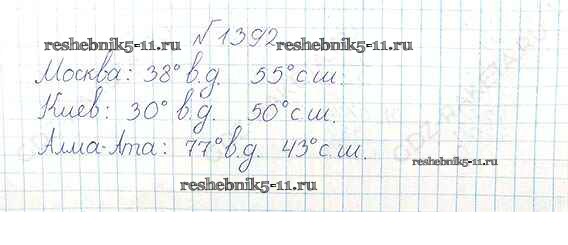 №1392
reshebnik5-11.ru reshebnik5-11.ru
Москва: 38° в.д. 55° с.ш.
Киев: 30° в.д. 50° с.ш.
Алма-Ата: 77° в.д. 43° с.ш.
reshebnik5-11.ru
reshebnik5-11.ru